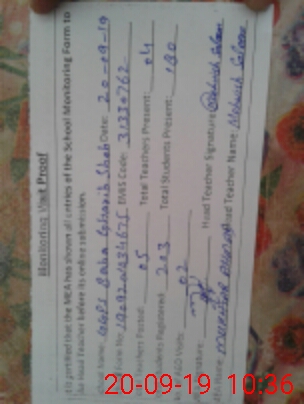 Monitoring Visit Proof
It is certified that the MEA has shown all entries of the School Monitoring Form to
the Head Teacher before its online submission.
Name: GGPS Baba Gharib Shah Date: 20-09-19
EMIS Code: 31330762
Teachers Posted: 05 Total Teachers Present: 04
Students Registered: 203 Total Students Present: 180
Visits: 02
Head Teacher Signature:
Head Teacher Name: Mehwish Saleem
20-09-19 10:36